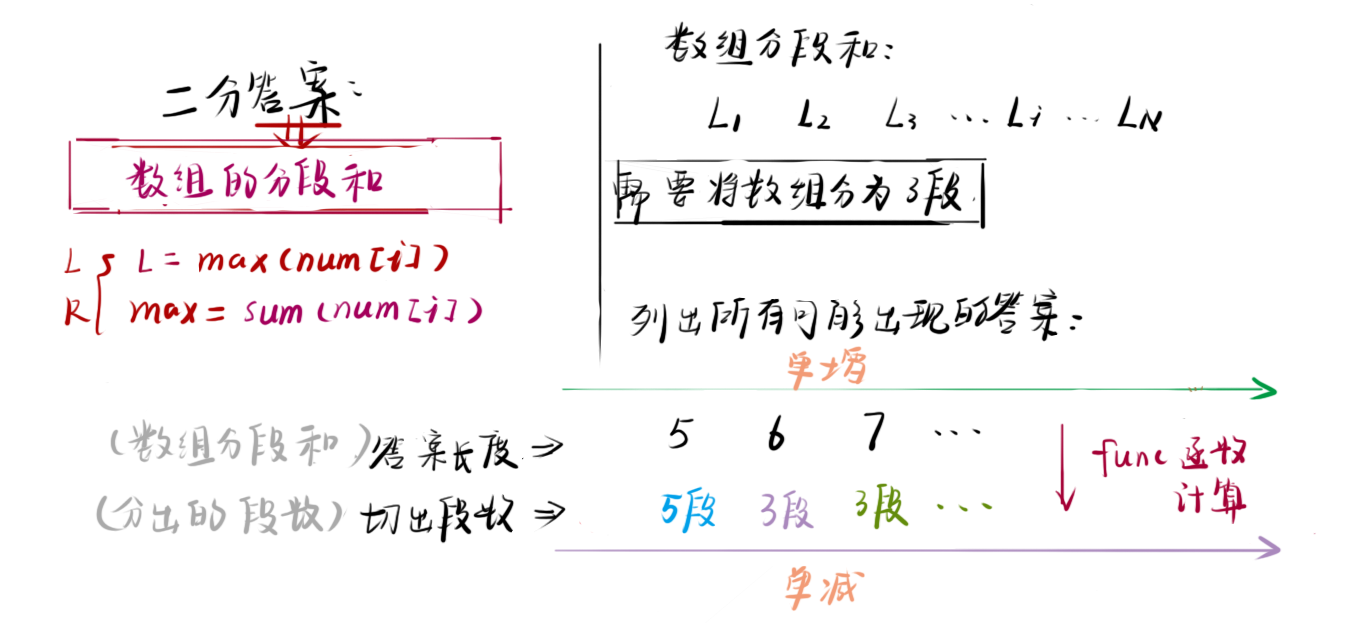 二分答案:
数组的分段和
L { L = max(num[i])
R { max = sum(num[i])
数组分段和:
L1 L2 L3 ... Li ... LN
需要将数组分为3段.
列出所有可能出现的答案:
单增
(数组分段和)答案长度 ⇒ 5 6 7 ...
(分出的段数)切出段数 ⇒ 5段 3段 3段 ...
func函数
计算
单减